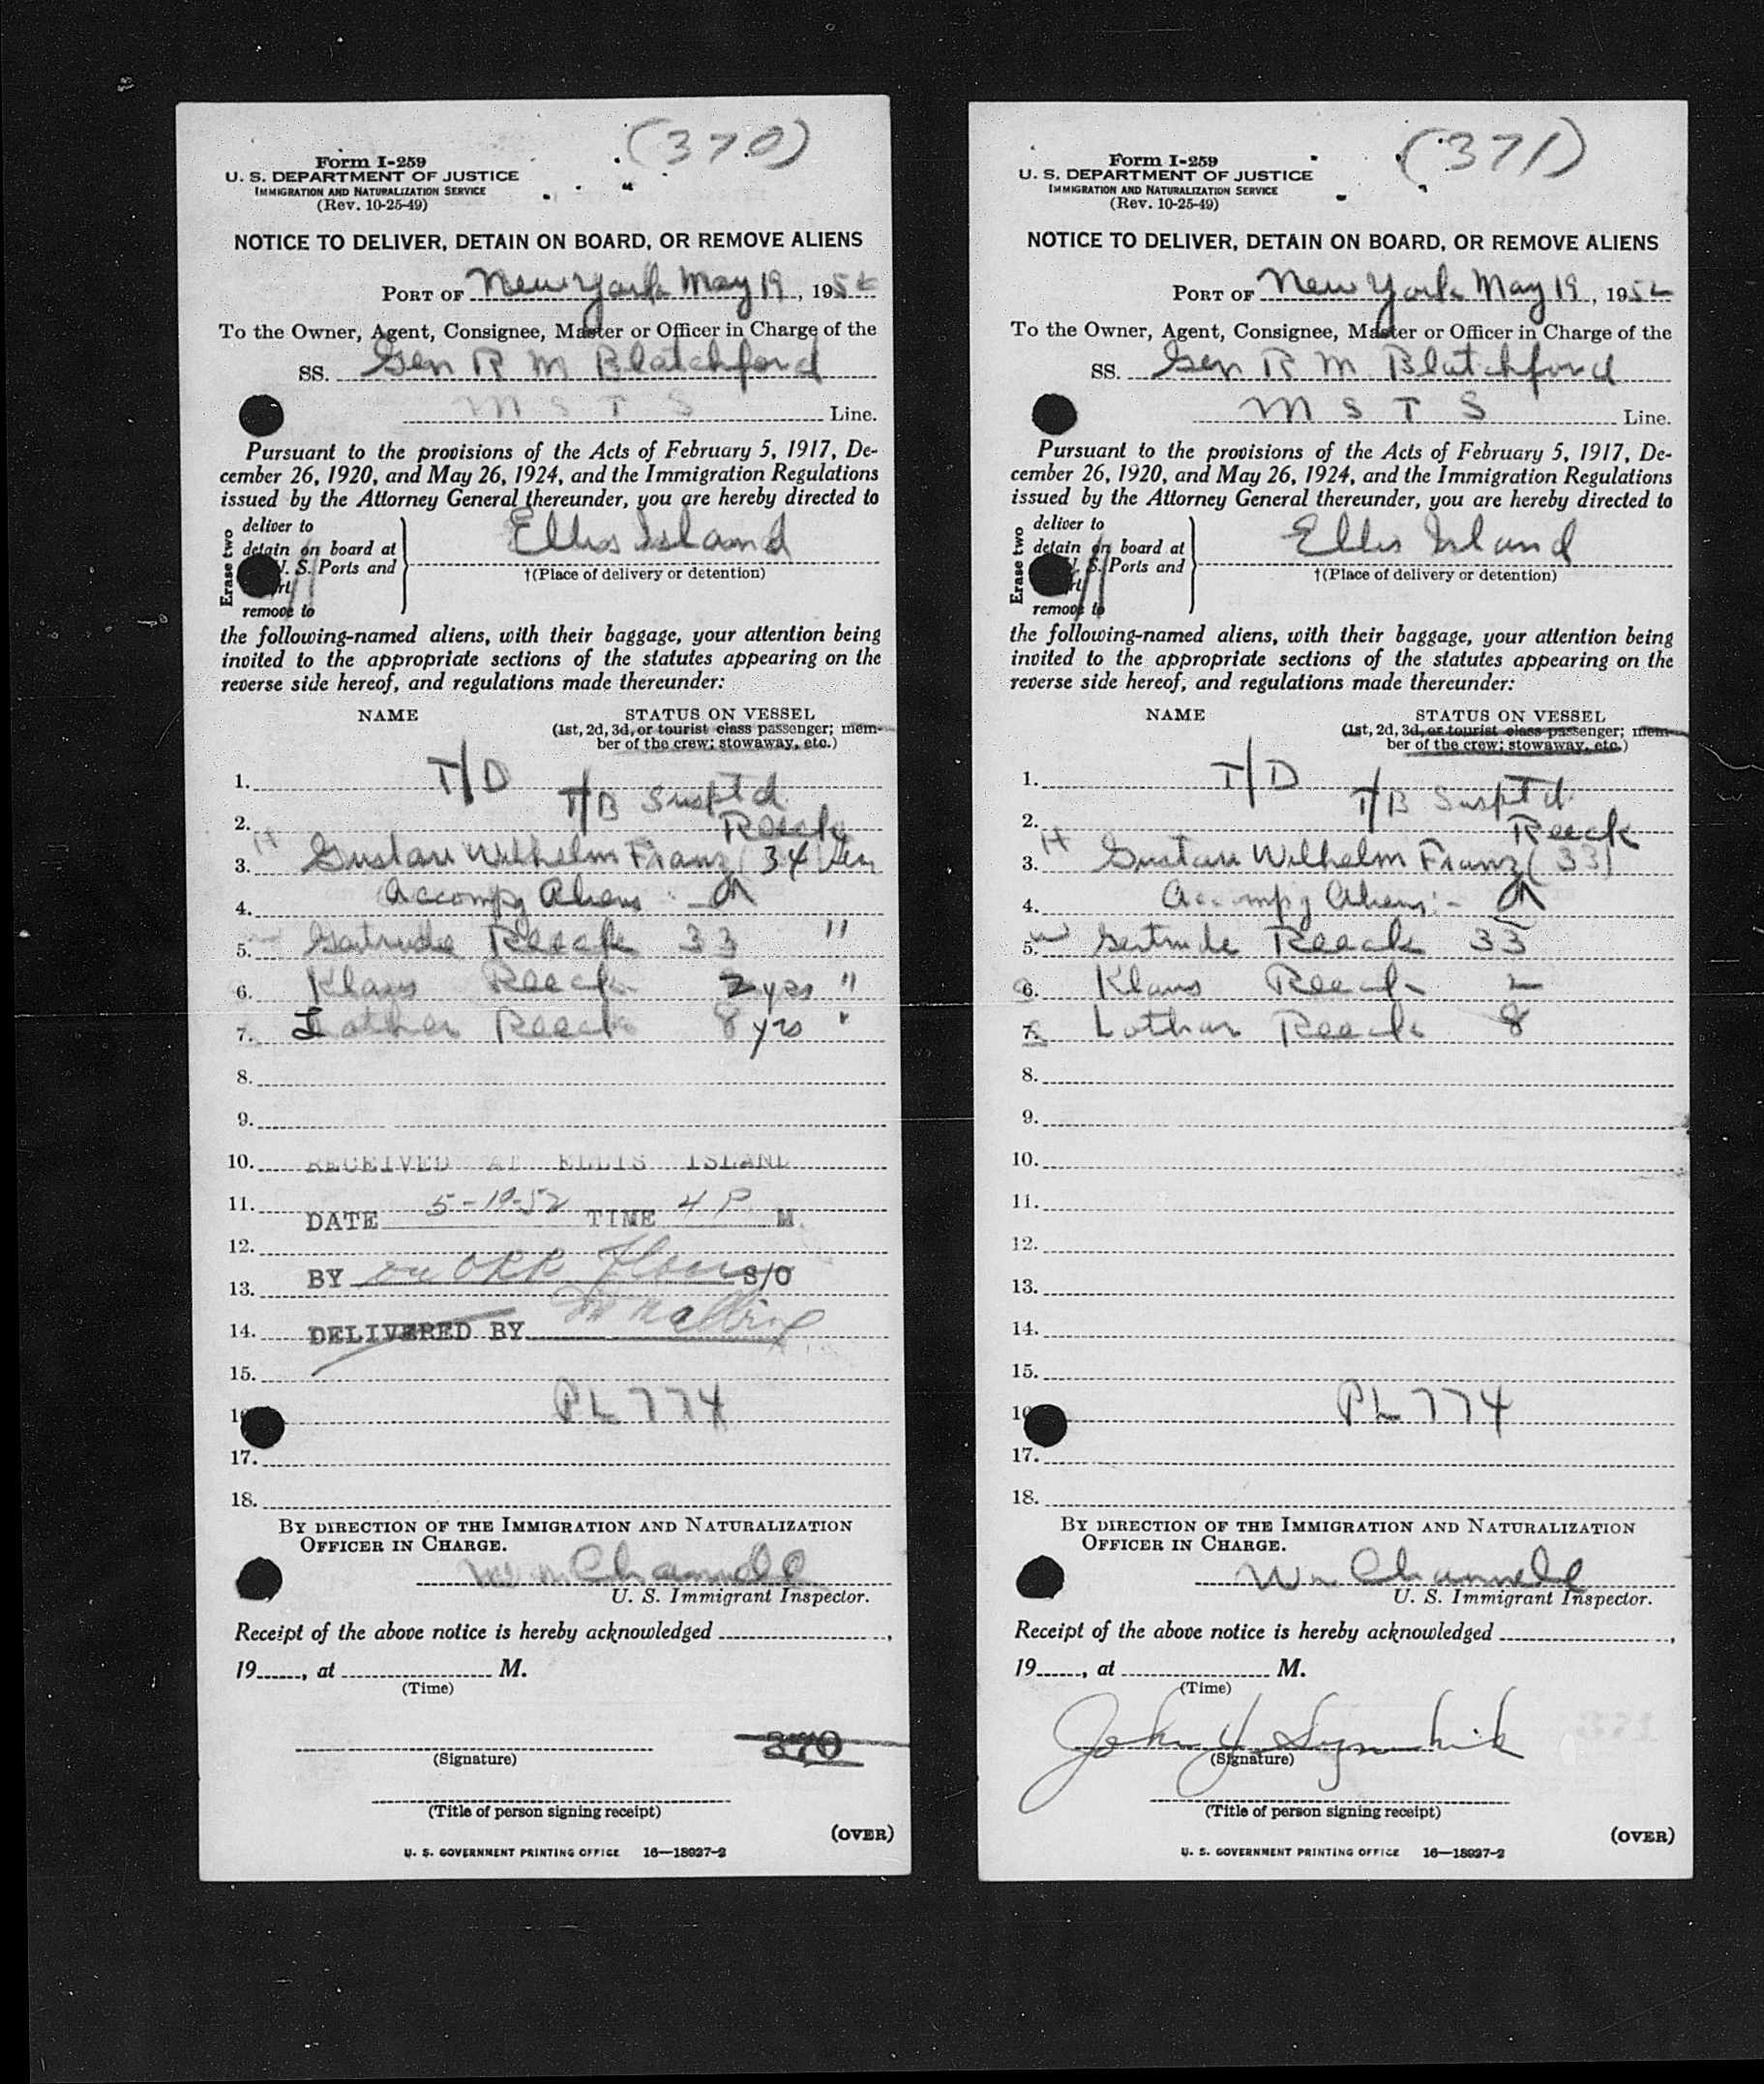 (370)
Form I-259
U. S. DEPARTMENT OF JUSTICE
IMMIGRATION AND NATURALIZATION SERVICE
(Rev. 10-25-49)
NOTICE TO DELIVER, DETAIN ON BOARD, OR REMOVE ALIENS
PORT OF New York May 19, 1952
To the Owner, Agent, Consignee, Master or Officer in Charge of the
SS. Gen R M Blatchford
M S T S Line.
Pursuant to the provisions of the Acts of February 5, 1917, De-
cember 26, 1920, and May 26, 1924, and the Immigration Regulations
issued by the Attorney General thereunder, you are hereby directed to
Erase two
deliver to
detain on board at
U. S. Ports and
remove to
Ellis Island
†(Place of delivery or detention)
the following-named aliens, with their baggage, your attention being
invited to the appropriate sections of the statutes appearing on the
reverse side hereof, and regulations made thereunder:
NAME STATUS ON VESSEL
(1st, 2d, 3d, or tourist class passenger; mem-
ber of the crew; stowaway, etc.)
1. T/D
T/B Suspt'd
2. Reeck
H
3. Gustav Wilhelm Franz (34 Ger
4. Accompg Aliens :- 
5. Gertrude Reeck 33 "
6. Klaus Reeck 2 yrs "
7. Lothar Reeck 8 yrs "
8.
9.
10. RECEIVED AT ELLIS ISLAND
11. DATE 5-19-52 TIME 4 P M.
12.
13. BY S/O
14. DELIVERED BY
15.
PL 774
16
17.
18.
BY DIRECTION OF THE IMMIGRATION AND NATURALIZATION
OFFICER IN CHARGE.
Wm Channell
U. S. Immigrant Inspector.
Receipt of the above notice is hereby acknowledged ,
19 , at M.
(Time)
370
(Signature)
(Title of person signing receipt)
(OVER)
U. S. GOVERNMENT PRINTING OFFICE 16—18927-2
(371)
Form I-259
U. S. DEPARTMENT OF JUSTICE
IMMIGRATION AND NATURALIZATION SERVICE
(Rev. 10-25-49)
NOTICE TO DELIVER, DETAIN ON BOARD, OR REMOVE ALIENS
PORT OF New York May 19, 1952
To the Owner, Agent, Consignee, Master or Officer in Charge of the
SS. Gen R M Blatchford
M S T S Line.
Pursuant to the provisions of the Acts of February 5, 1917, De-
cember 26, 1920, and May 26, 1924, and the Immigration Regulations
issued by the Attorney General thereunder, you are hereby directed to
Erase two
deliver to
detain on board at
U. S. Ports and
remove to
Ellis Island
†(Place of delivery or detention)
the following-named aliens, with their baggage, your attention being
invited to the appropriate sections of the statutes appearing on the
reverse side hereof, and regulations made thereunder:
NAME STATUS ON VESSEL
(1st, 2d, 3d, or tourist class passenger; mem-
ber of the crew; stowaway, etc.)
1. T/D
T/B Suspt'd
2. Reeck
H
3. Gustav Wilhelm Franz (33)
4. Accompg Aliens :-
5. W Gertrude Reeck 33
6. Klaus Reeck 2
7. Lothar Reeck 8
8.
9.
10.
11.
12.
13.
14.
15.
PL 774
16
17.
18.
BY DIRECTION OF THE IMMIGRATION AND NATURALIZATION
OFFICER IN CHARGE.
Wm Channell
U. S. Immigrant Inspector.
Receipt of the above notice is hereby acknowledged ,
19 , at M.
(Time)
John
(Signature)
(Title of person signing receipt)
(OVER)
U. S. GOVERNMENT PRINTING OFFICE 16—18927-2